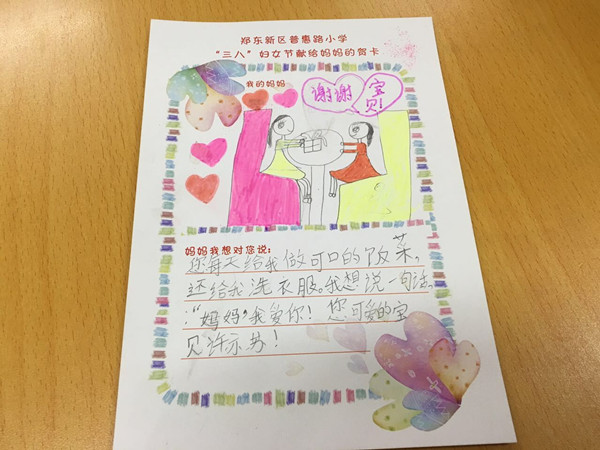 郑东新区普惠路小学
“三八”妇女节献给妈妈的贺卡
我的妈妈
谢谢宝
贝!
妈妈我想对您说:
您每天给我做可口的饭菜,
还给我洗衣服。我想说一句话,
:“妈妈,我爱你! 您可爱的宝
贝许示苏!